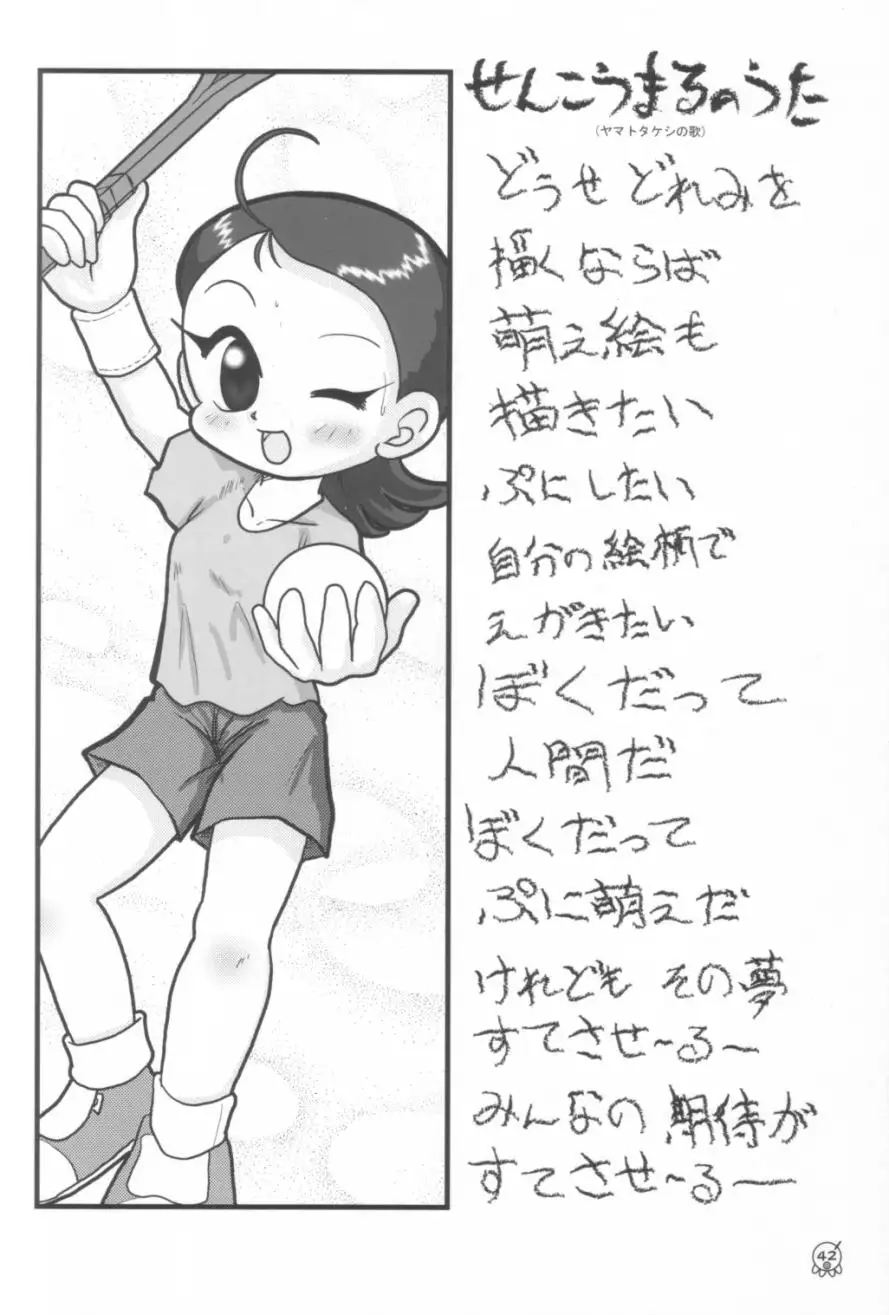 せんこうまるのうた
(ヤマトタケシの歌)
どうせ どれみを
描くならば
萌え絵も
描きたい
ぷにしたい
自分の絵柄で
えがきたい
ぼくだって
人間だ
ぼくだって
ぷに萌えだ
けれども その夢
すてさせ～る～
みんなの 期待が
すてさせ～る―
42